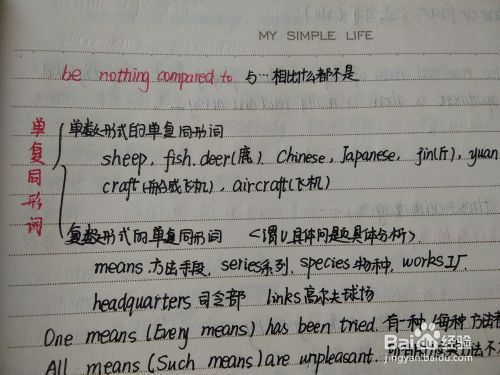 MY SIMPLE LIFE
be nothing compared to 与…相比什么都不是
单复同形词
单数形式的单复同形词
sheep, fish. deer(鹿). Chinese, Japanese, jin(斤), yuan
craft(船或飞机), aircraft(飞机)
复数形式的单复同形词 <谓V具体问题具体分析>.
means.方法手段, series系列, species.物种, works工厂.
headquarters 司令部 links高尔夫球场
One means (Every means) has been tried. 有一种/每种方法都
All means (Such means) are unpleasant.
Baidu 经验
jingyan.baidu.com